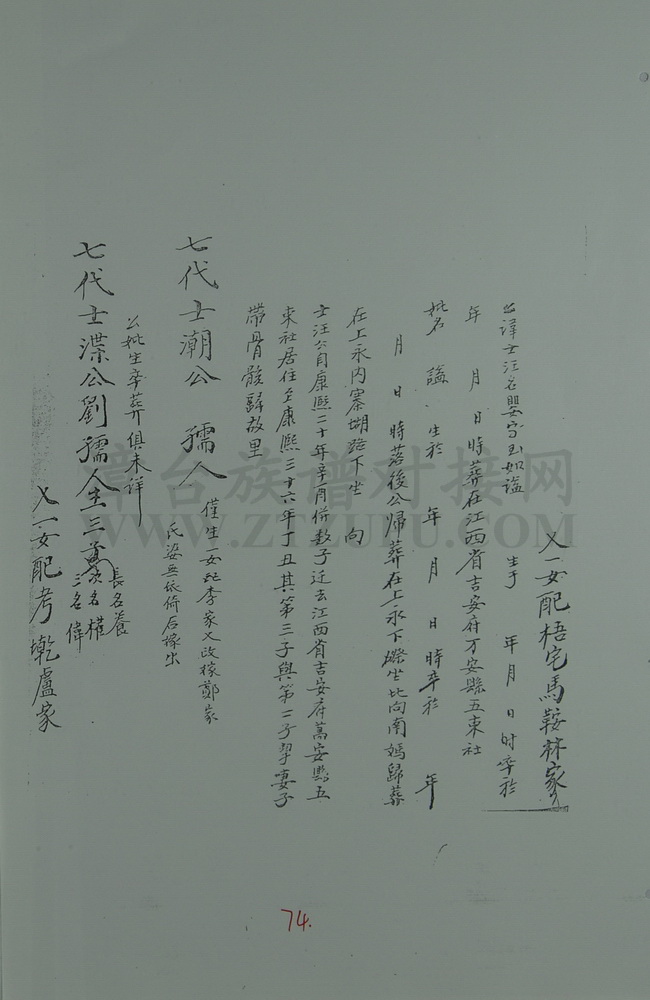 又一女配梧宅馬鞍林家
公諱士汪名嬰字玉如謚 生于 年 月 日时卒於
年 月 日時葬在江西省吉安府万安縣五束社
妣名 謚 生於 年 月 日時卒於 年
月 日時落後公帰葬在上永下 坐北向南媽歸葬
在上永内寨 下坐 向
士汪公自康熙二十年辛 月併数子迁去江西省吉安府萬安縣五
束社居住至康熙三十六年丁丑其第三子與第二子 妻子
帶骨骸歸故里
七代士潮公 孺人 僅生一女 李家又改嫁鄭家
氏 無依倚后嫁出
公妣生卒葬俱未詳
七代士渫公劉孺人生三 長名養
次名權
三名偉
又一女配考 盧家
74.
章台族谱对接网
WWW.ZTZUPU.COM